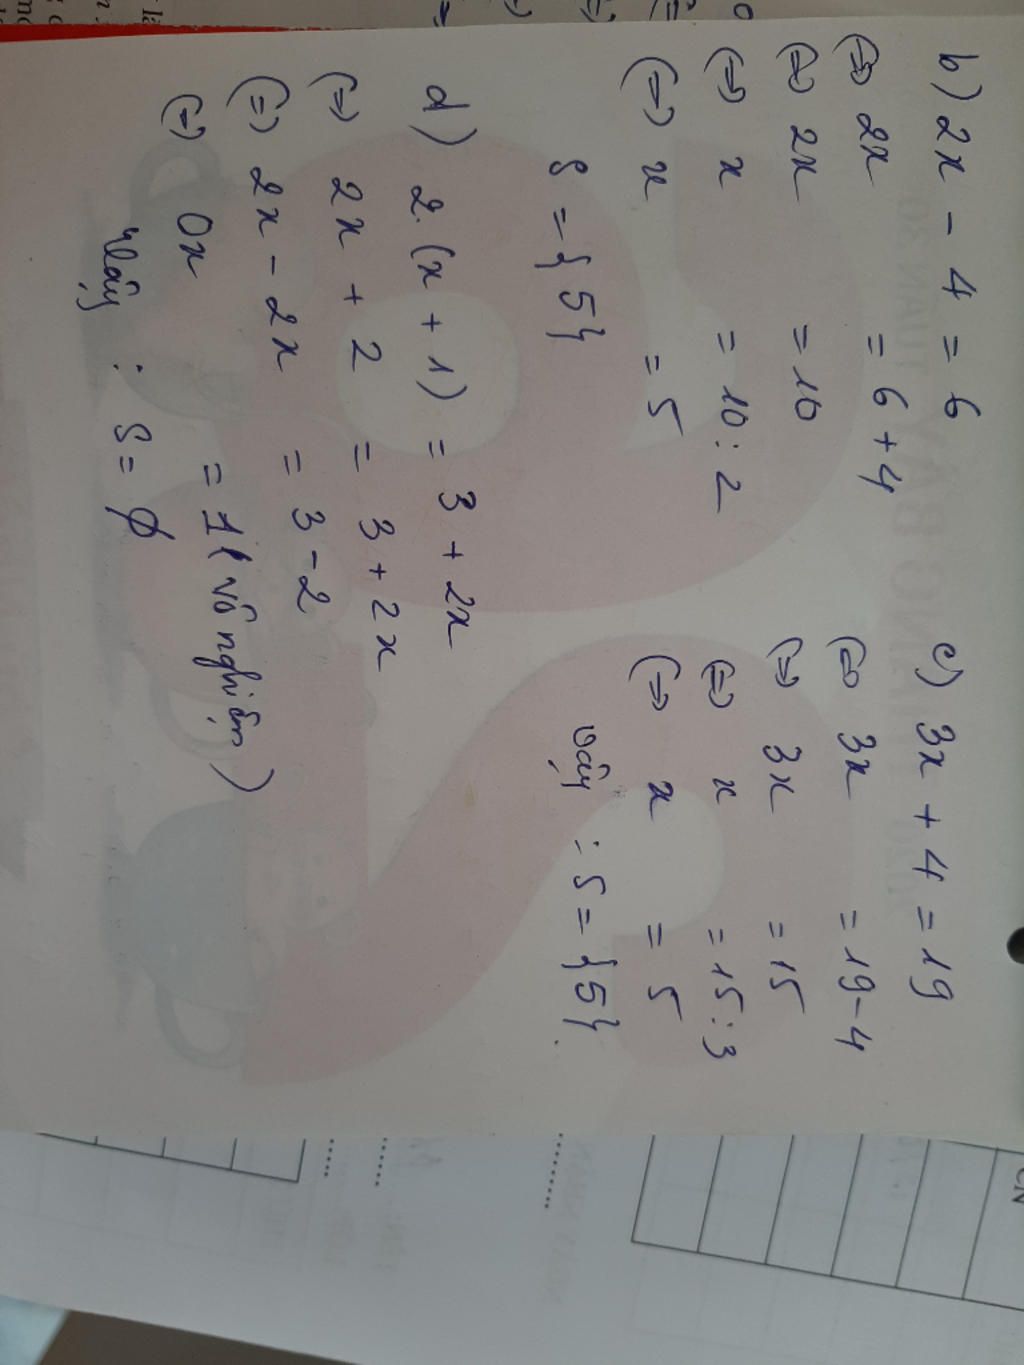 b) 2x - 4 = 6
(=) 2x = 6 + 4
(=) 2x = 10
(=) x = 10 : 2
(=) x = 5
S = {5}
c) 3x + 4 = 19
(=) 3x = 19 - 4
(=) 3x = 15
(=) x = 15 : 3
(=) x = 5
vậy : S = {5}.
d) 2.(x + 1) = 3 + 2x
(=) 2x + 2 = 3 + 2x
(=) 2x - 2x = 3 - 2
(=) 0x = 1 (vô nghiệm)
vậy : S = ∅
CN